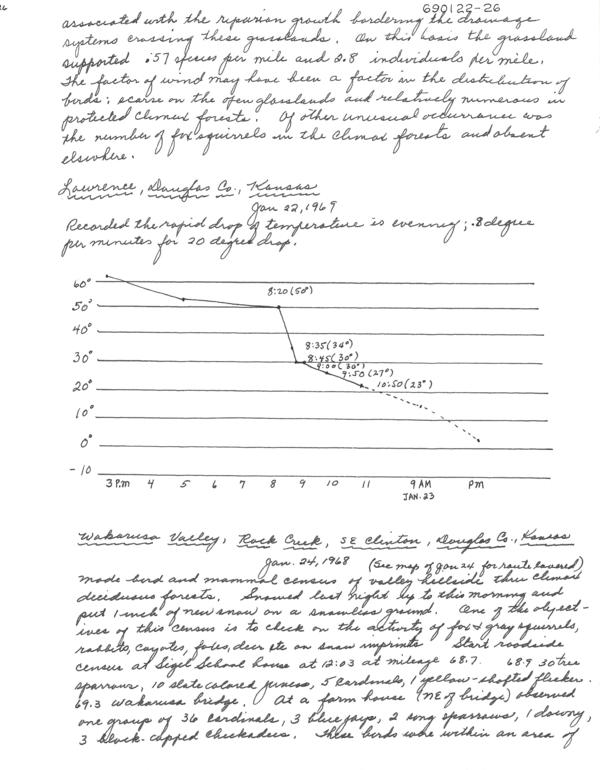 690122-26
associated with the riparian growth bordering the drainage
systems crossing these grasslands. On this basis the grassland
supported .57 species per mile and 2.8 individuals per mile.
The factor of wind may have been a factor in the distribution of
birds; scarse on the open glasslands and relatively numerous in
protected climax forests. Of other unusual occurrance was
the number of fox squirrels in the climax forests and absent
elsewhere.
Lawrence, Douglas Co., Kansas
Jan 22, 1969
Recorded the rapid drop of temperature is evenney; .8 degree
per minutes for 20 degree drop.
60°
8:20 (50°)
50°
40°
8:35 (34°)
30°
8:45 (30°)
9:00 (30°)
9:50 (27°)
20°
10:50 (23°)
10°
0°
-10
3 P.m 4 5 6 7 8 9 10 11 9 AM Pm
JAN. 23
Wakarusa Valley, Rock Creek, SE Clinton, Douglas Co., Kansas
Jan. 24, 1968 (See map of Jan 24 for route covered)
Made bird and mammal census of valley hillside thru climax
deciduous forests. Snowed last night up to this morning and
put 1-inch of new snow on a snowless ground. One of the object-
ives of this census is to check on the activity of fox & gray squirrels,
rabbits, coyotes, foxes, deer etc on snow imprints Start roadside
census at Sigel School house at 12:03 at mileage 68.7. 68.9 30 tree
sparrows, 10 slate colored juncos, 5 Cardinals, 1 yellow-shafted flicker.
69.3 Wakarusa bridge. At a farm house (NE of bridge) observed
one group of 36 Cardinals, 3 blue jays, 2 song sparrows, 1 downy,
3 black-capped chickadees. These birds were within an area of